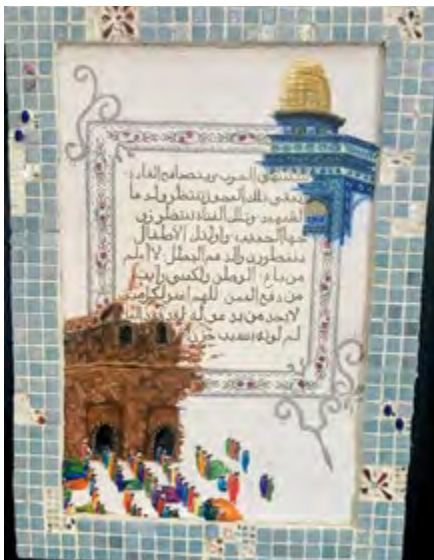 ستنتهي الحرب ويتصافح القادة
وتبقى تلك العجوز تنتظر ولدها
الشهيد وتلك الفتاة تنتظر زو
جها الحبيب واولئك الاطفال
ينتظرون والدهم البطل لا اعلم
من باع الوطن ولكنني رايت
من دفع الثمن اللهم
لا يجد من له